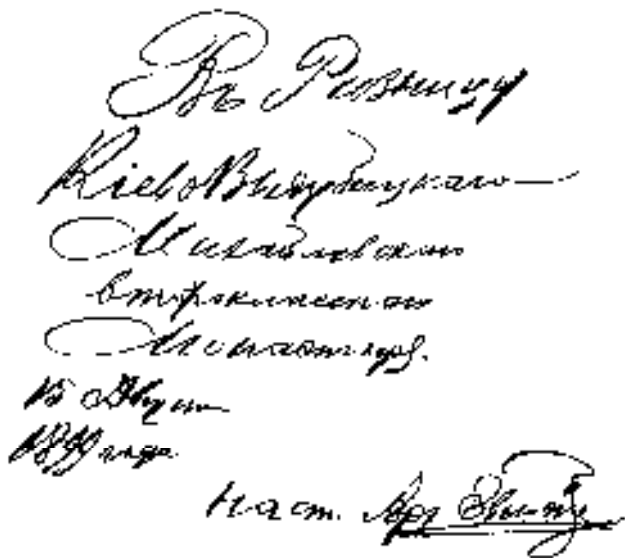 Въ Ризницу
Кіево Выдубицкаго
Михайловскаго
второкласснаго
Монастыря.
15 Августа
1899 года
Наст. Арх.